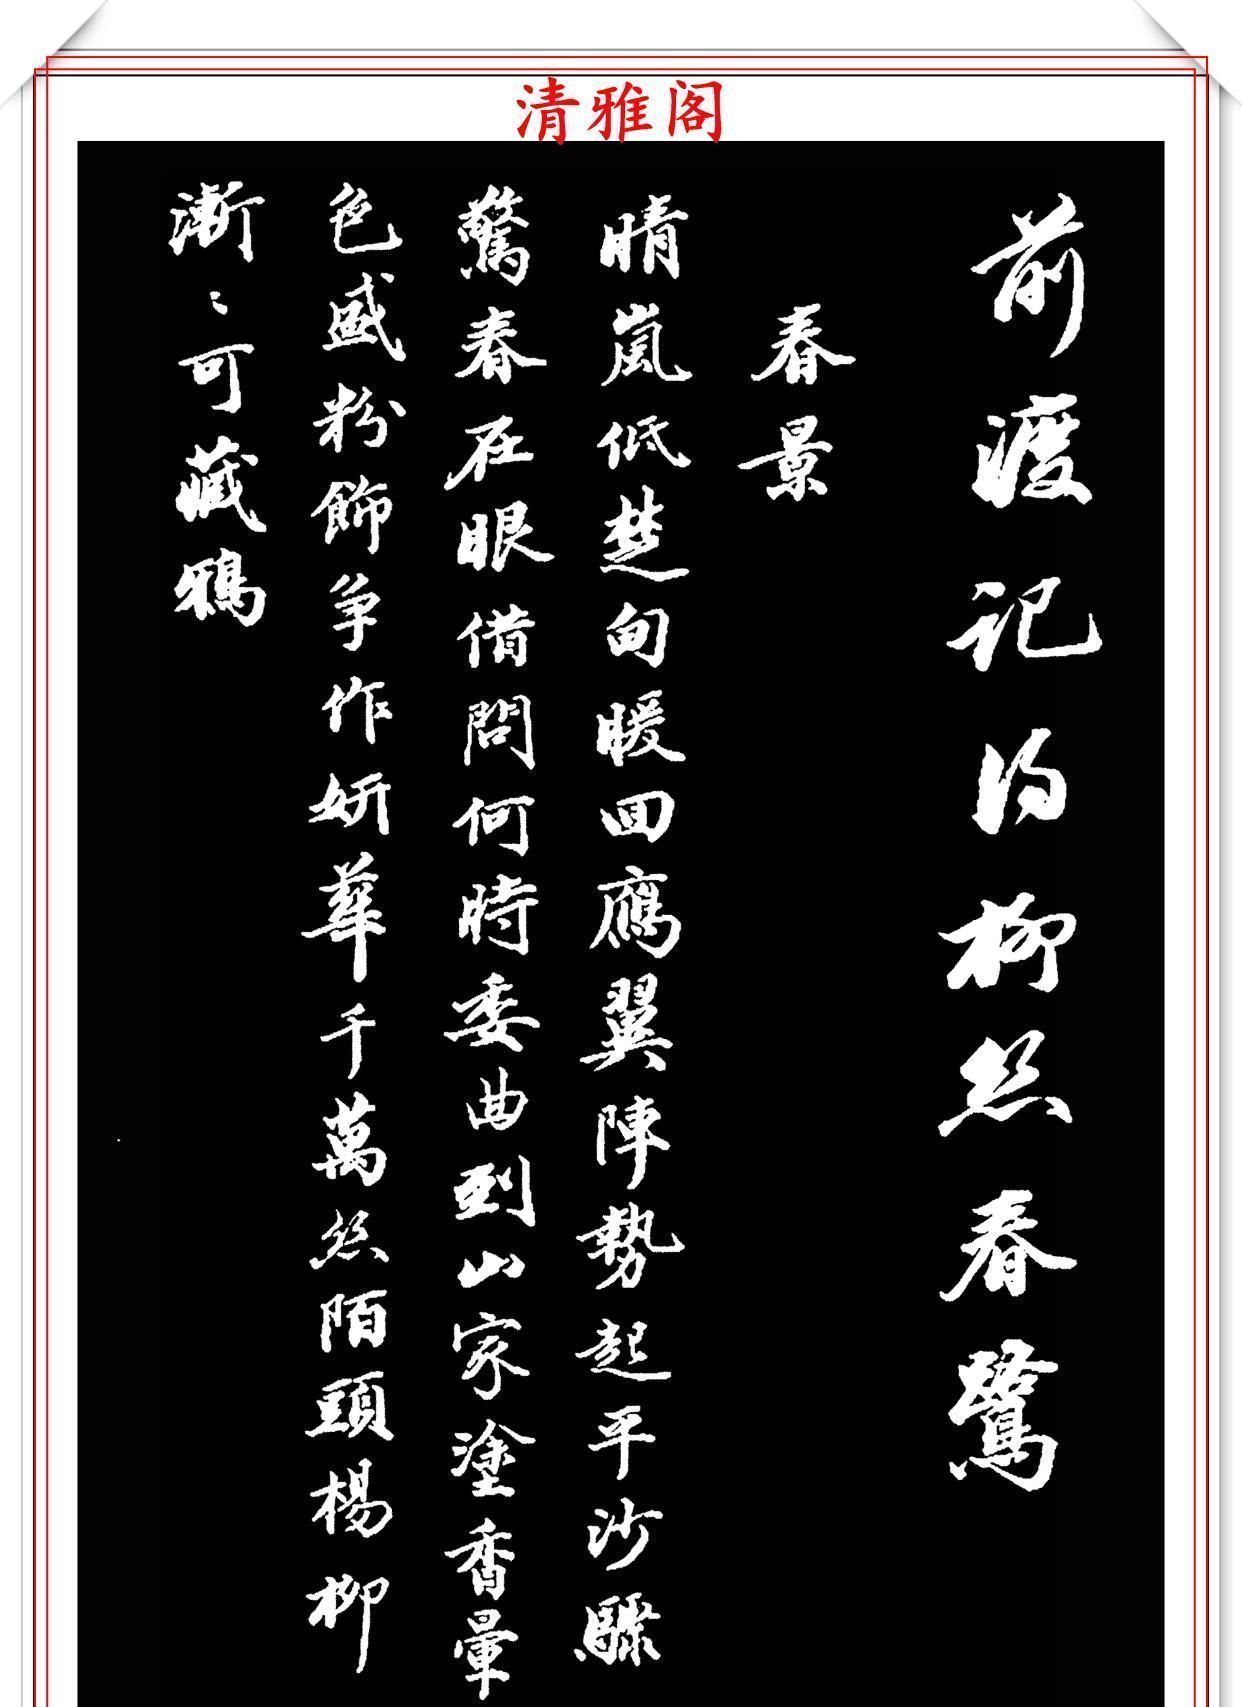 清雅阁
前渡記得柳絲春鷺
春景
晴嵐低楚甸暖回鴈翼陣勢起平沙驟
驚春在眼借問何時委曲到山家塗香暈
色盛粉飾爭作妍華千萬絲陌頭楊柳
漸〻可藏鴉